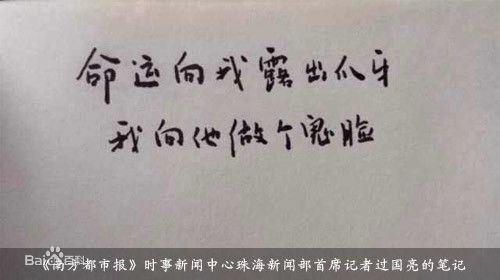 命运向我露出爪牙
我向他做个鬼脸
Bai百科
《南方都市报》时事新闻中心珠海新闻部首席记者过国亮的笔记